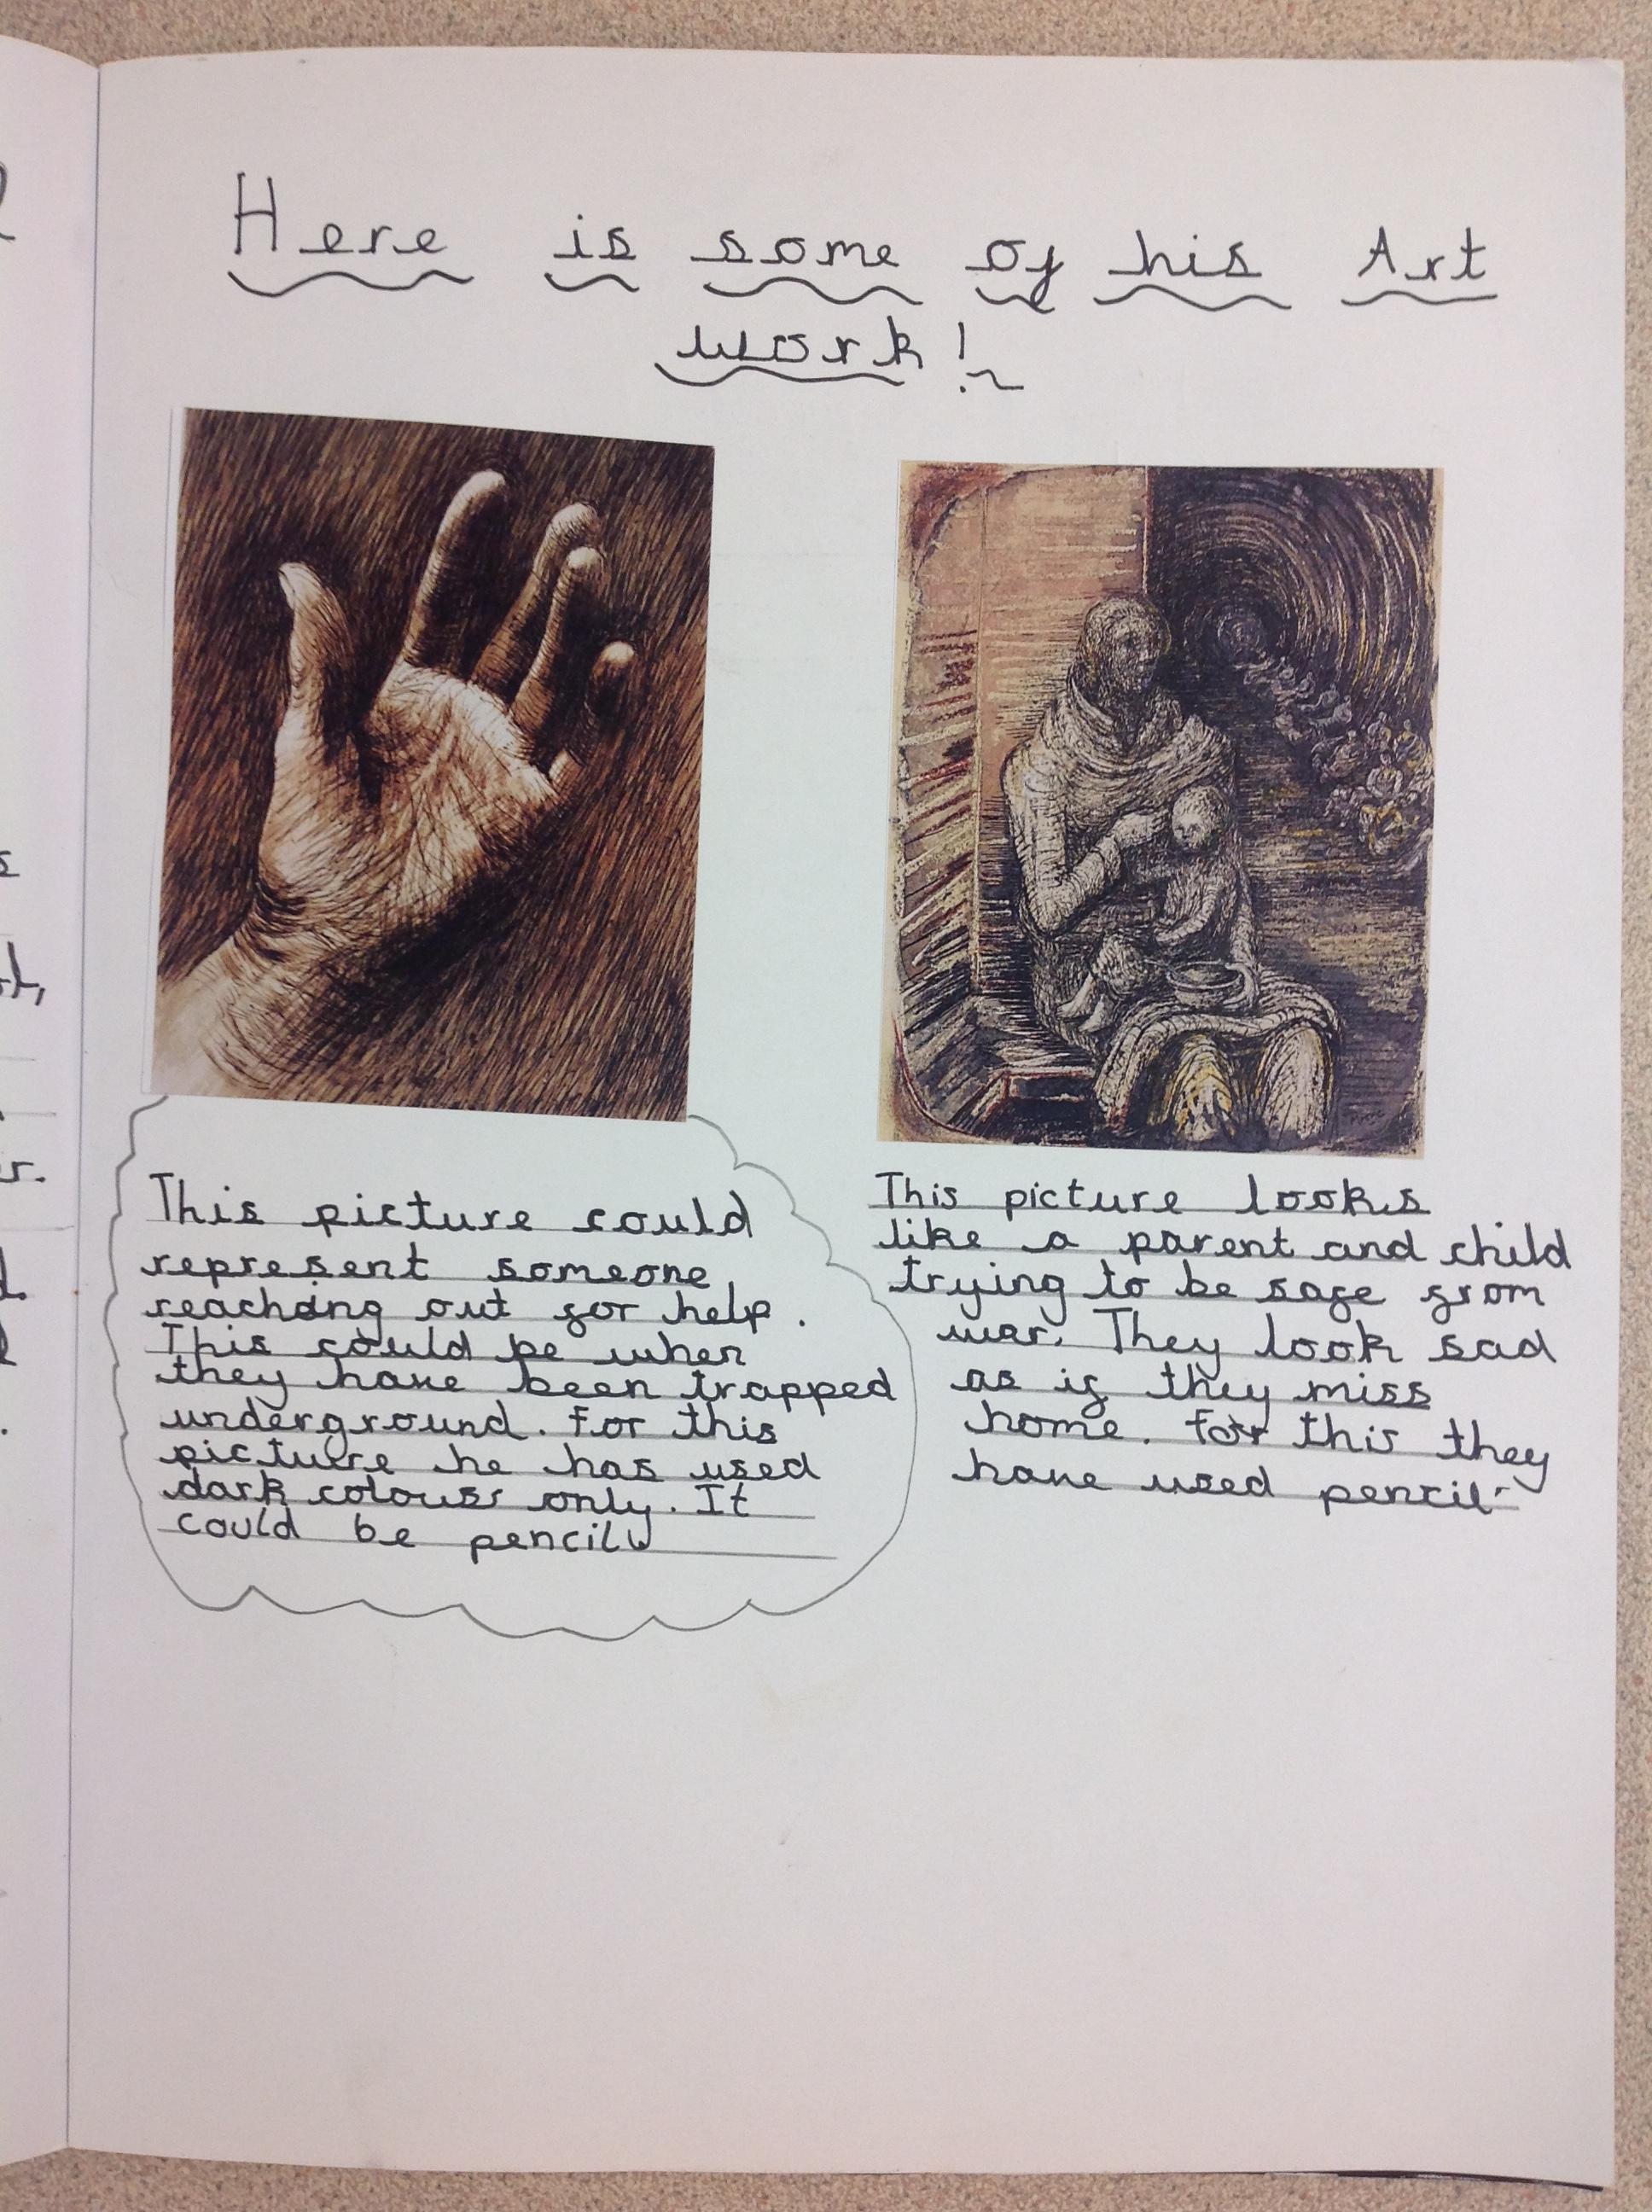 Here is some of his Art
work!
This picture could
represent someone
reaching out for help.
This could be when
they have been trapped
underground. For this
picture he has used
dark colours only. It
could be pencil
This picture looks
like a parent and child
trying to be safe from
war. They look sad
as if they miss
home. For this they
have used pencil.